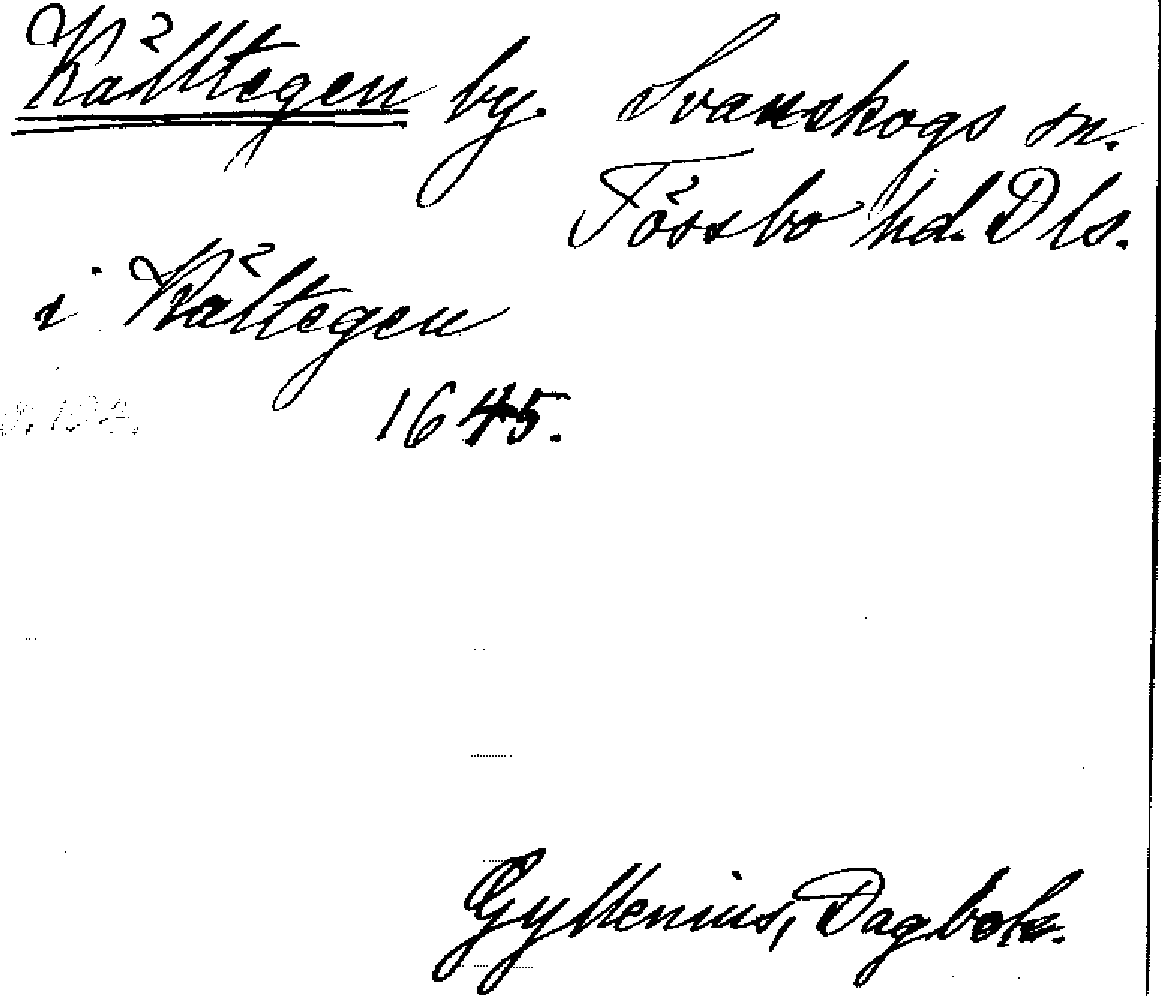 Källtegen by. Svanskogs sn.
Tössbo hd. Dls.
i Källtegen
1645.
Gyllenius, Dagbok.